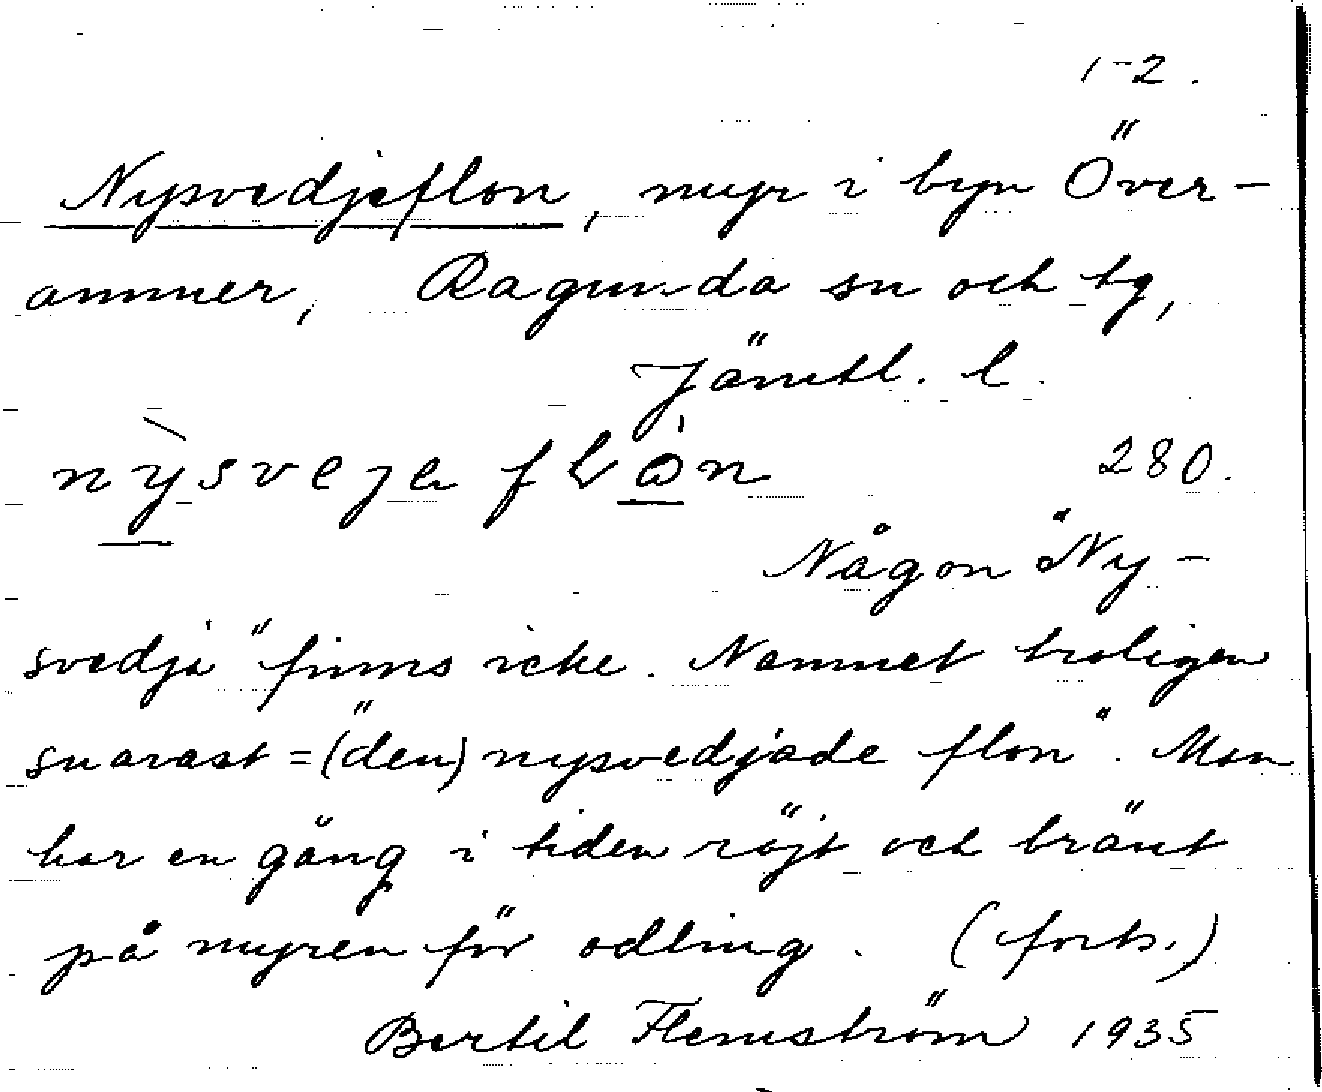 1-2.
Nysvedjeflon, myr i byn Över-
ammer, Ragunda sn och tg,
Jämtl. l.
280.
Någon "Ny-
svedja" finns icke. Namnet troligen
snarast = "(den) nysvedjade flon". Man
har en gång i tiden röjt och bränt
på myren för odling. (forts.)
Bertil Flemström 1935